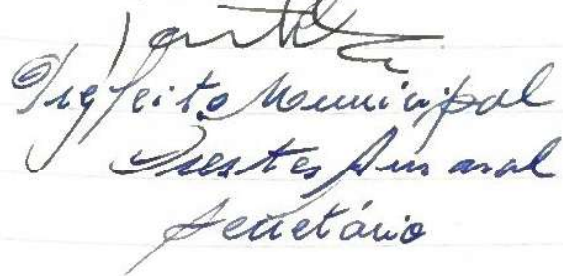 Prefeito Municipal
Prestes Amaral
Secretário